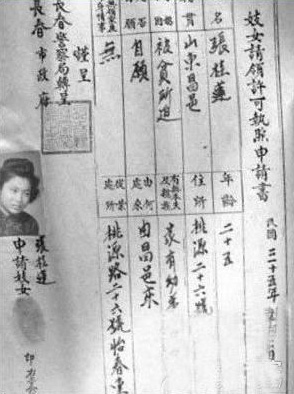 妓女請領許可執照申請書
民國三十五年
名
張桂蓮
年齡
二十五
貫
山東昌邑
住所
桃源二十六號
被貧所迫
有無家屬
及親族
家有幼弟
自願
由何
處來
由昌邑來
無
從業
處所
桃源路二十六號怡春
謹呈
長春警察局轉呈
長春市政府
張桂蓮
申請妓女
印